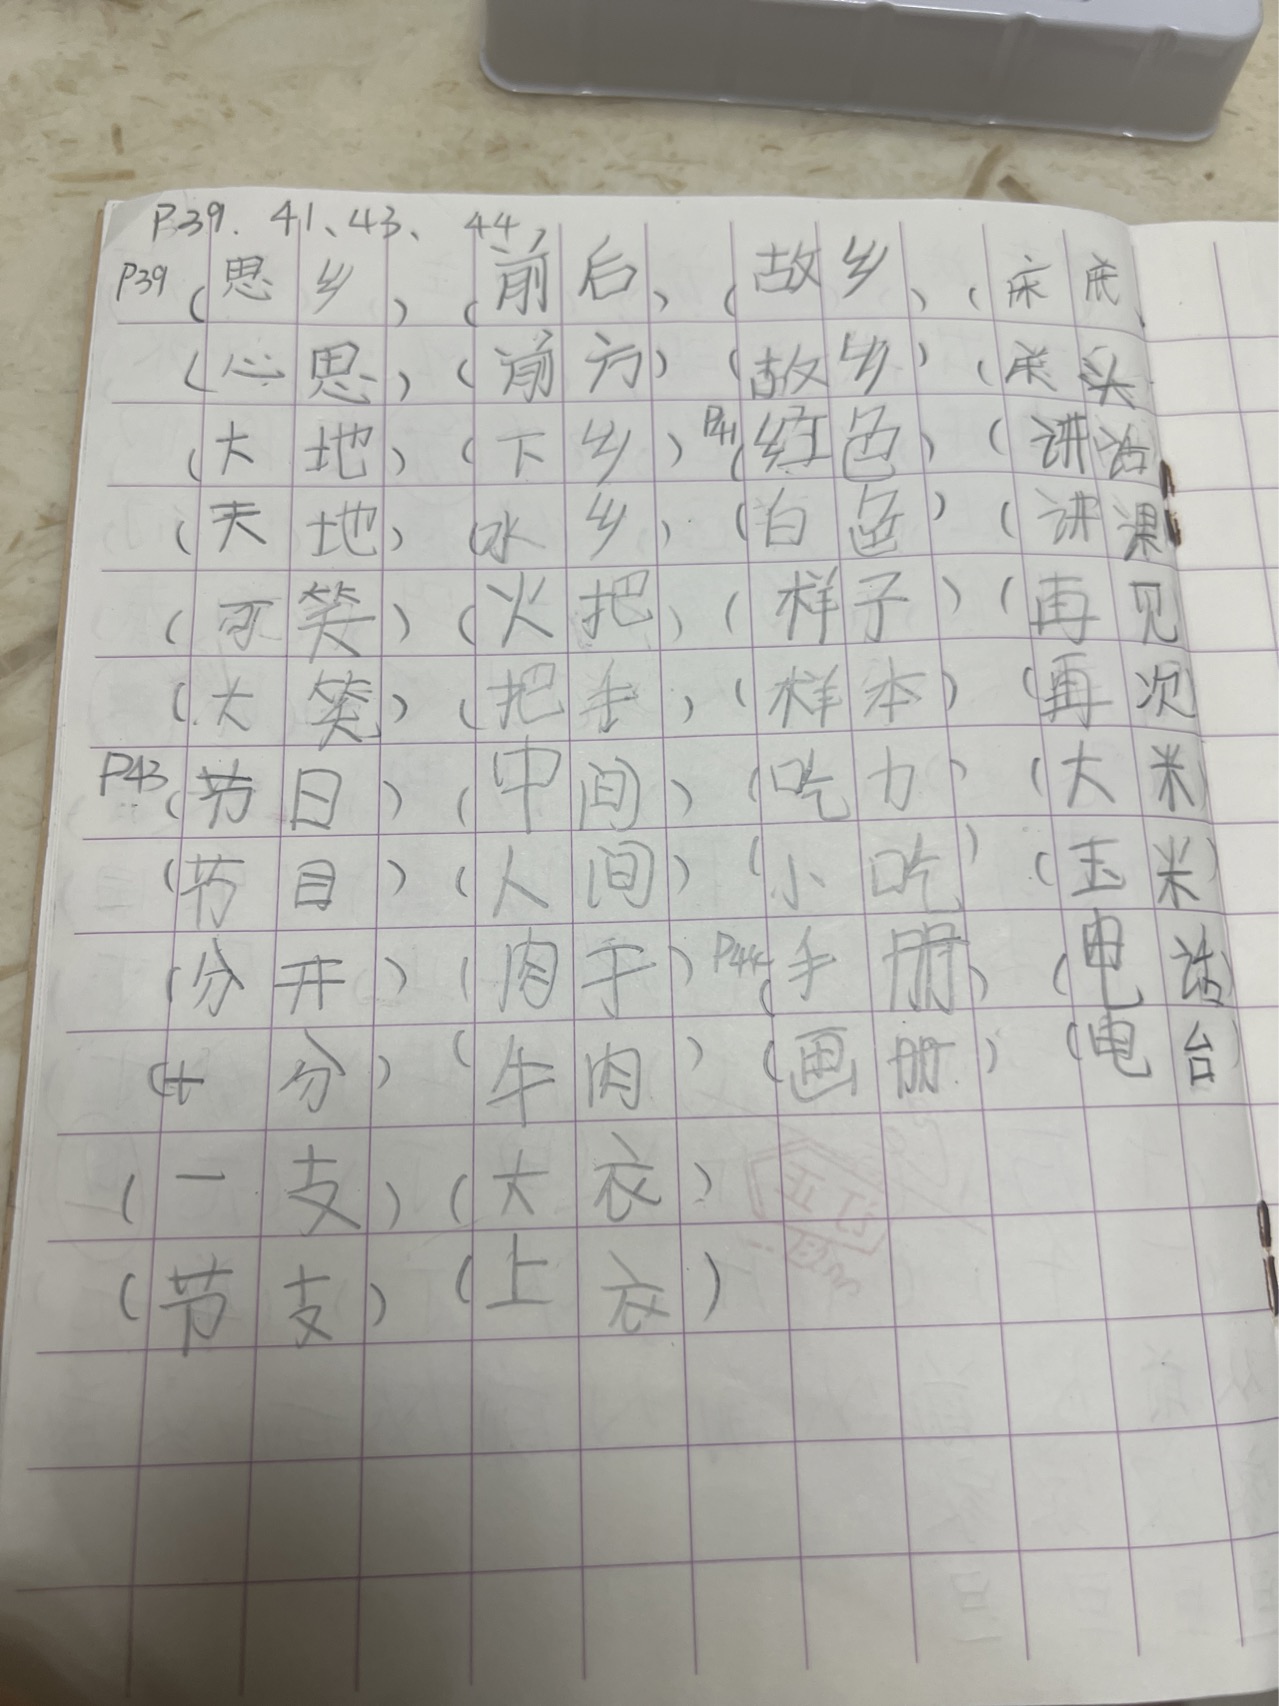 P39、41、43、44、
P39 (思乡) (前后) (故乡) (床
(心思) (前方) (故乡) (床头
(大地) (下乡) P41 (红色) (讲话
(天地) (水乡) (白色) (讲课
(可笑) (火把) (样子) (再见
(大笑) (把手) (样本) (再次
P43 (节日) (中间) (吃力) (大米)
(节目) (人间) (小吃) (玉米)
(分开) (肉干) P44 (手册) (电话)
(十分) (牛肉) (画册) (电台)
(一支) (大衣)
(节支) (上衣)